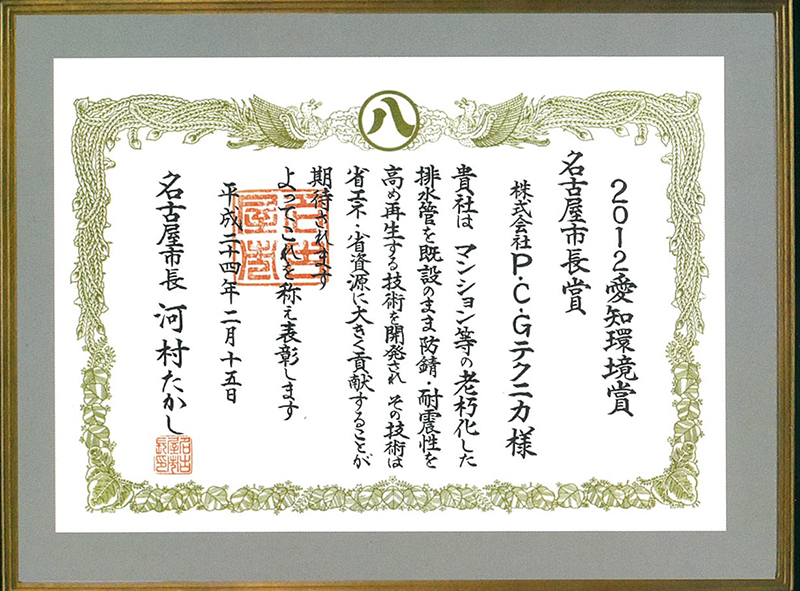 八
2012愛知環境賞
名古屋市長賞
株式会社P・C・Gテクニカ様
貴社は マンション等の老朽化した
排水管を既設のまま防錆・耐震性を
高め再生する技術を開発され その技術は
省エネ・省資源に大きく貢献することが
期待されます
よってこれを称え表彰します
平成二十四年二月十五日
名古屋市長 河村たかし
名古屋市
名古屋市長印